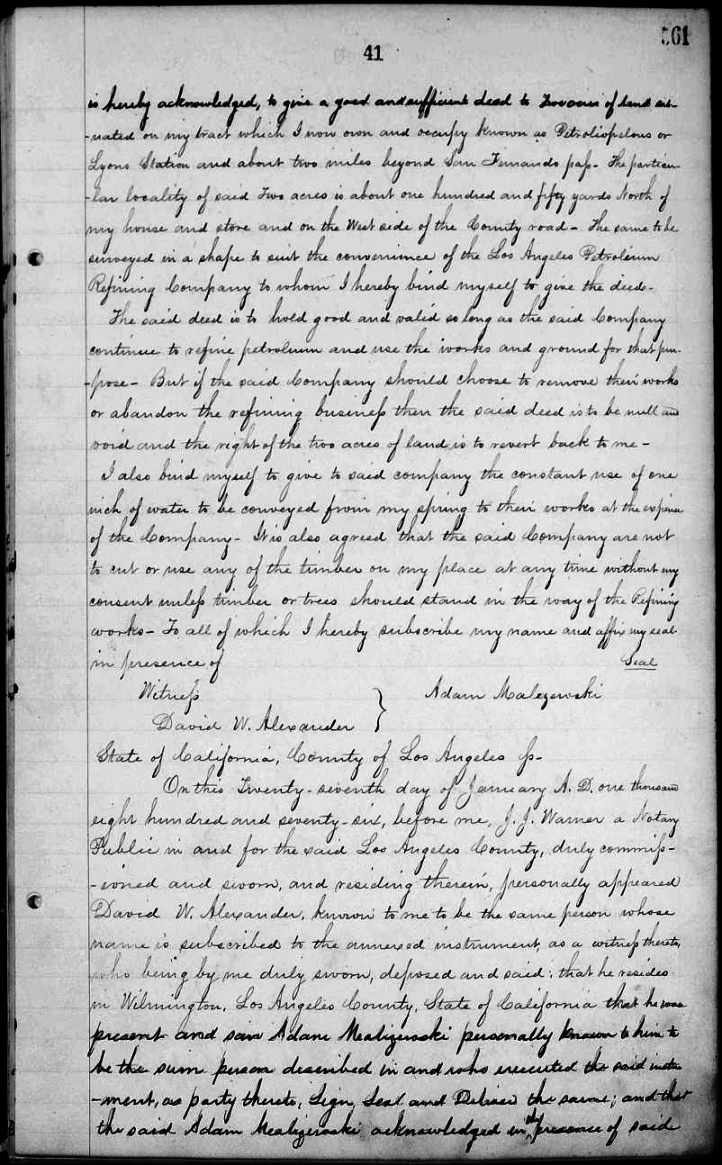 41
561
is hereby acknowledged, to give a good and sufficient deed to Two acres of land sit-
-uated on my tract which I now own and occupy known as Petroliopolous or
Lyons Station and about two miles beyond San Fernando pass- The particu-
-lar locality of said Two acres is about one hundred and fifty yards North of
my house and store and on the West side of the County road- The same to be
surveyed in a shape to suit the convenience of the Los Angeles Petroleum
Refining Company to whom I hereby bind myself to give the deed-
The said deed is to hold good and valid so long as the said Company
continue to refine petroleum and use the works and ground for that pur-
-pose- But if the said Company should choose to remove their works
or abandon the refining business then the said deed is to be null and
void and the right of the two acres of land is to revert back to me-
I also bind myself to give to said company the constant use of one
inch of water to be conveyed from my spring to their works at the expense
of the Company- It is also agreed that the said Company are not
to cut or use any of the timber on my place at any time without my
consent unless timber or trees should stand in the way of the Refining
works- To all of which I hereby subscribe my name and affix my seal
in presence of Seal
Witness Adam Malezewski
David W. Alexander }
State of California, County of Los Angeles ss-
On this Twenty-seventh day of January A. D. one thousand
eight hundred and seventy-six, before me, J. J. Warner a Notary
Public in and for the said Los Angeles County, duly commiss-
-ioned and sworn, and residing therein, personally appeared
David W. Alexander, known to me to be the same person whose
name is subscribed to the annexed instrument, as a witness thereto,
who being by me duly sworn, deposed and said: that he resides
in Wilmington, Los Angeles County, State of California that he was
present and saw Adam Malizewski personally known to him to
be the same person described in and who executed the said instru
-ment, as party thereto, Sign, Seal and Deliver the same; and that
the said Adam Malizewski acknowledged in the presence of said